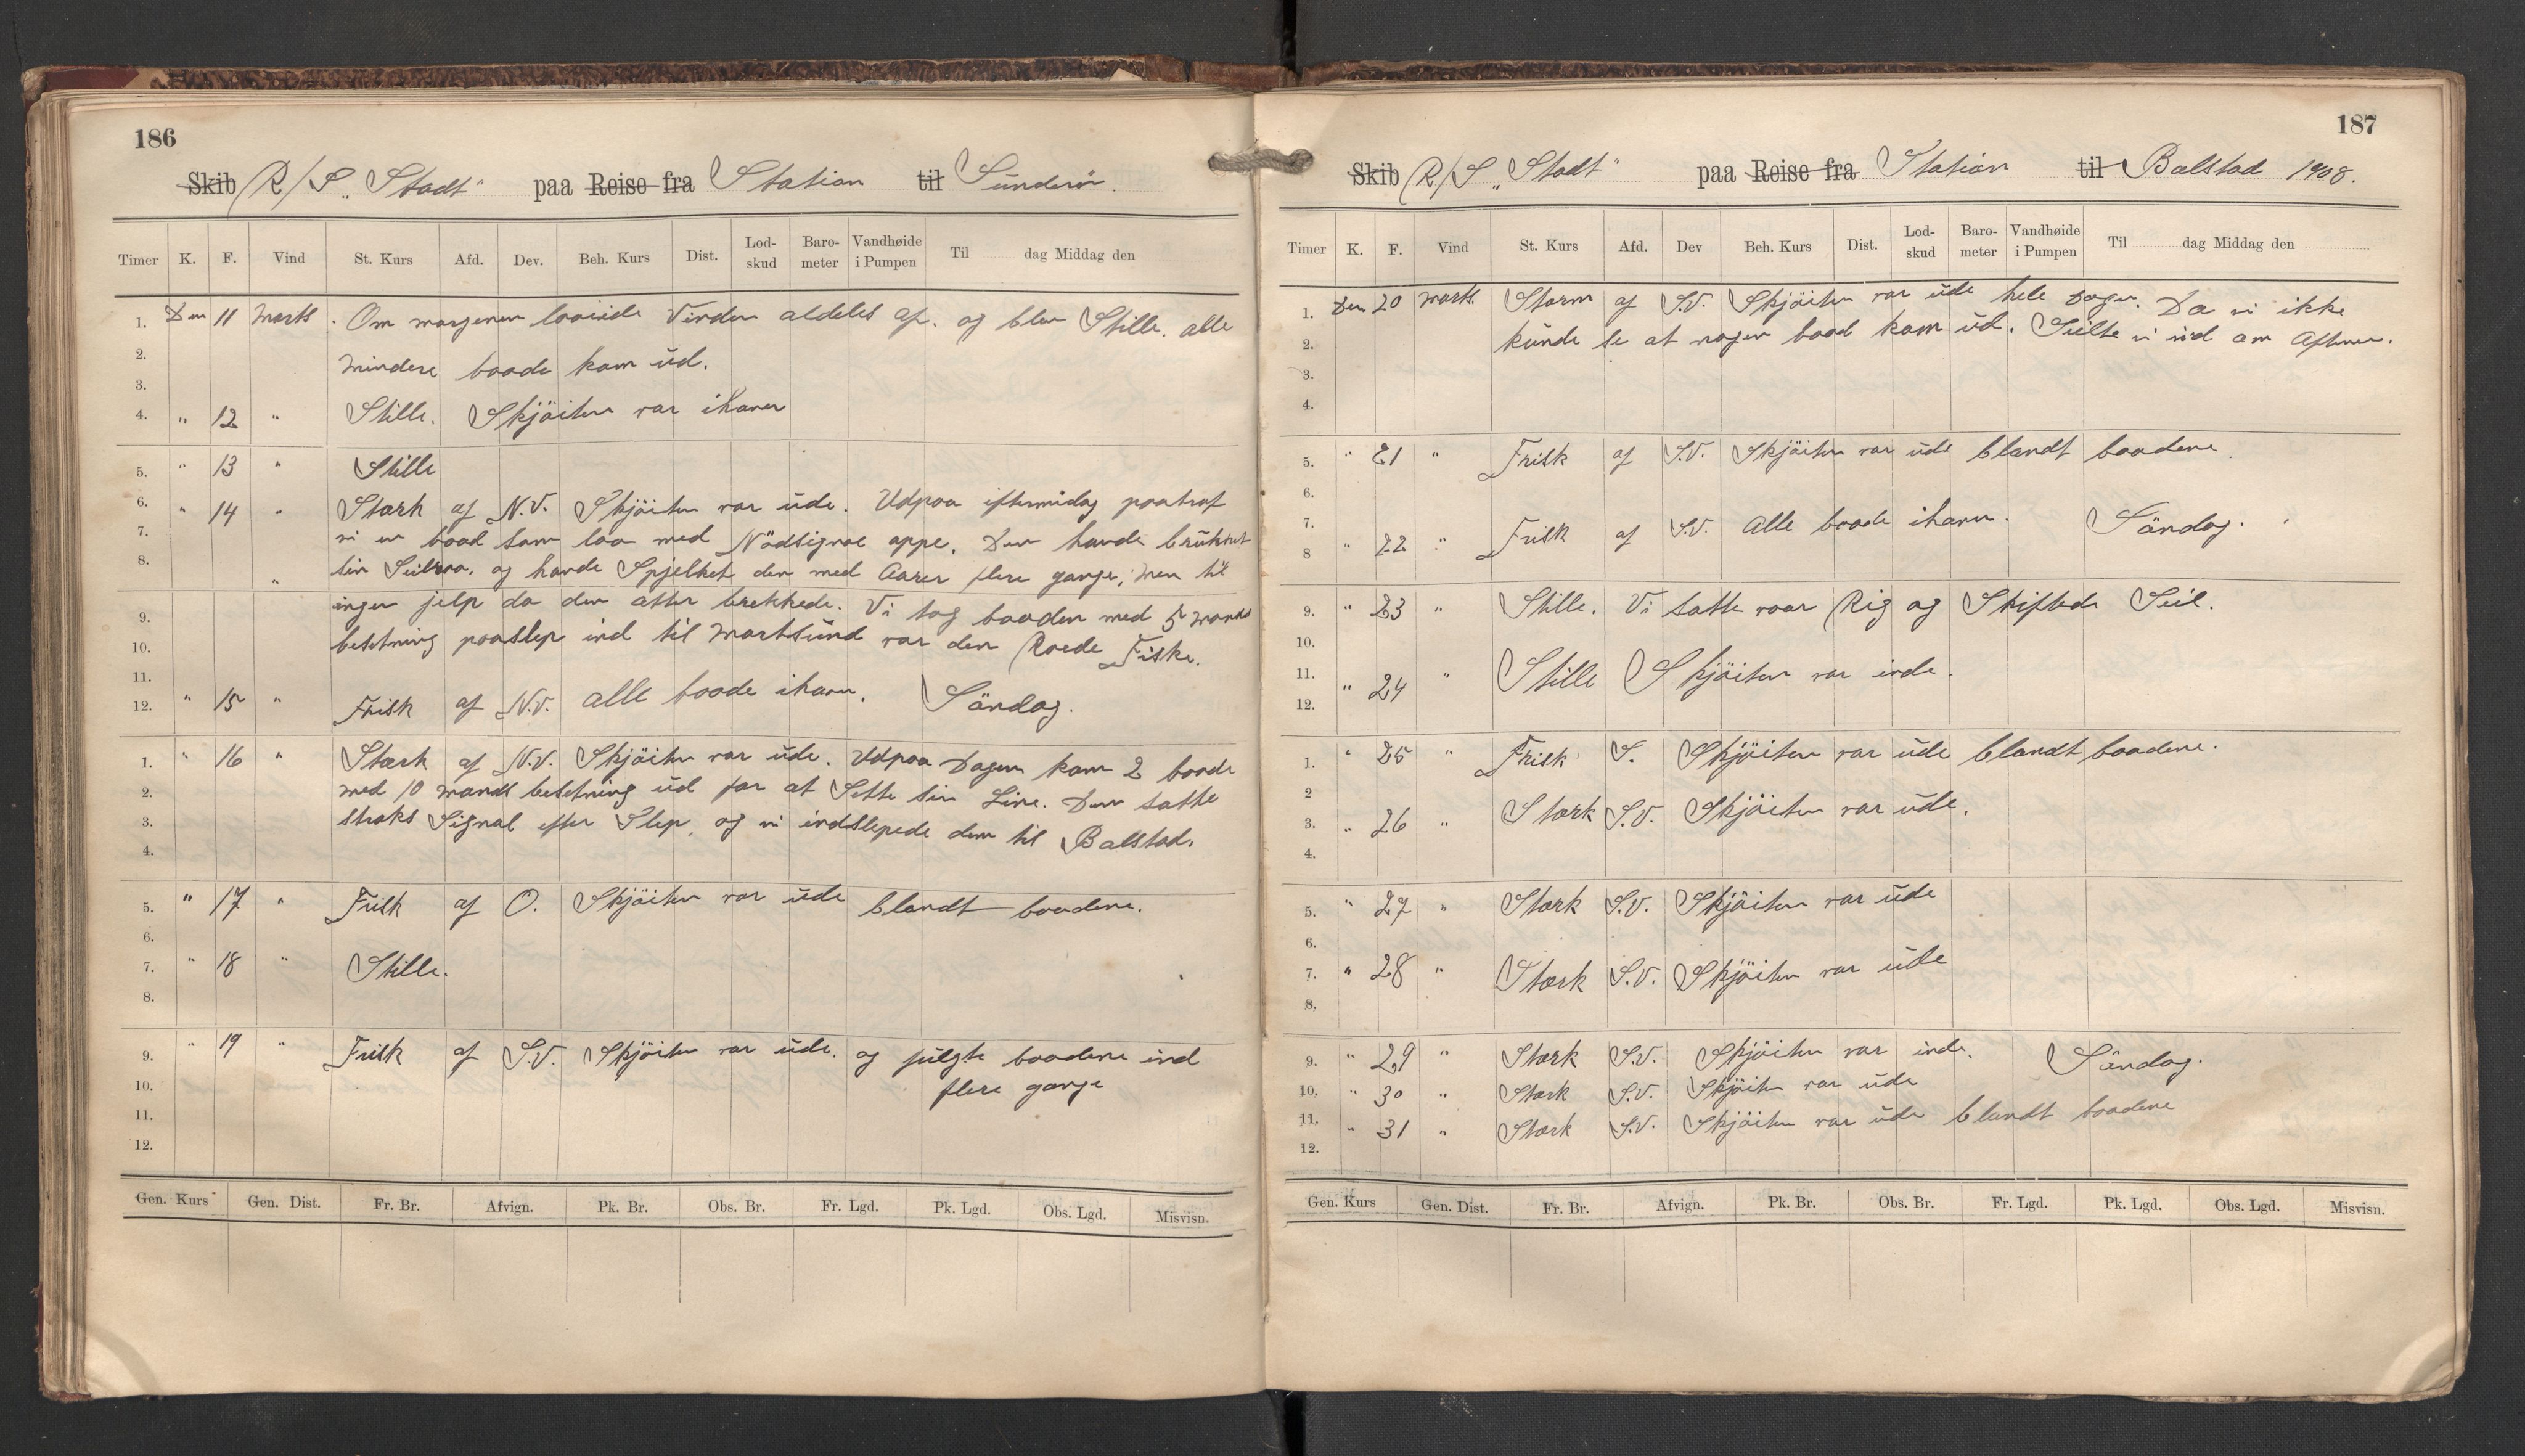 186
Skib R/S „Stadt" paa Reise fra Station til Sunderör.
Timer K. F. Vind St. Kurs Afd. Dev. Beh. Kurs Dist. Lod-skud Baro-meter Vandhøide i Pumpen Til dag Middag den
1. Den 11 Marts. Om morgenen looiede Vinden aldeles af. og blev Stille. alle
2. mindere baade kom ud.
3.
4. " 12 " Stille. Skjöiten var ihavn
5. " 13 " Stille
6. " 14 " Stærk af N.V. Skjöiten var ude. Udpaa eftermidag paatraf
7. vi en baad som laa med Nödsignal oppe. Den havde brukket
8. sin Seilraa. og havde Spjelket den med Aarer flere gange, men til
" ingen jelp da den atter brekkede. Vi tog baaden med 5 mands
9.
10. besetning paaslep ind til Mortsund var den Roede Fiske.
11.
12. " 15 " Frisk af N.V. alle baade ihavn. Söndag.
1. " 16 " Stærk af N.V. Skjöiten var ude. Udpaa Dagen kom 2 baade
2. med 10 mands besetning ud for at Sette sin Line. Den satte
3. straks Signal efter Slep, og vi indslepede dem til Balstad.
4.
5. " 17 " Frisk af O. Skjöiten var ude blandt baadene.
6.
7. " 18 " Stille.
8.
9. " 19 " Frisk af S.V. Skjöiten var ude. og fulgte baadene ind
10. flere gange
11.
12.
Gen. Kurs Gen. Dist. Fr. Br. Afvign. Pk. Br. Obs. Br. Fr. Lgd. Pk. Lgd. Obs. Lgd. Misvisn.
187
Skib R/S „Stadt" paa Reise fra Station til Balstad 1908.
Timer K. F. Vind St. Kurs Afd. Dev Beh. Kurs Dist. Lod-skud Baro-meter Vandhøide i Pumpen Til dag Middag den
1. Den 20 Marts. Storm af S.V. Skjöiten var ude hele Dagen. Da vi ikke
2. kunde se at nogen baad kom ud. Seilte vi ind om Aftenen.
3.
4.
5. " 21 " Frisk af S.V. Skjöiten var ude blandt baadene.
6.
7.
8 " 22 " Frisk af S.V. Alle baade ihavn. Söndag.
9. " 23 " Stille. Vi satte vaar Rig og Skiftede Seil.
10.
11. " 24 " Stille Skjöiten var inde.
12.
1. " 25 " Frisk S. Skjöiten var ude blandt baadene.
2
3. " 26 " Stærk S.V. Skjöiten var ude.
4.
5. " 27 " Stærk S.V. Skjöiten var ude
6.
7. " 28 " Stærk S.V. Skjöiten var ude
8.
9. " 29 " Stærk S.V. Skjöiten var inde. Söndag.
10. " 30 " Stærk S.V. Skjöiten var ude
11. " 31 " Stærk S.V. Skjöiten var ude blandt baadene
12.
Gen. Kurs Gen. Dist. Fr. Br. Afvign. Pk. Br. Obs. Br. Fr. Lgd. Pk. Lgd. Obs. Lgd. Misvisn.